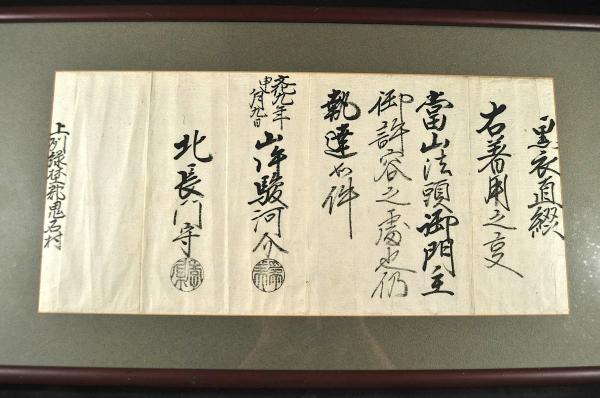 黒衣直綴
右着用之㕝
當山法頭御門主
御許容之處也仍
執達如件
文化九年
申月九日
山駿河介
北長門守
上刕緑埜郡鬼石村